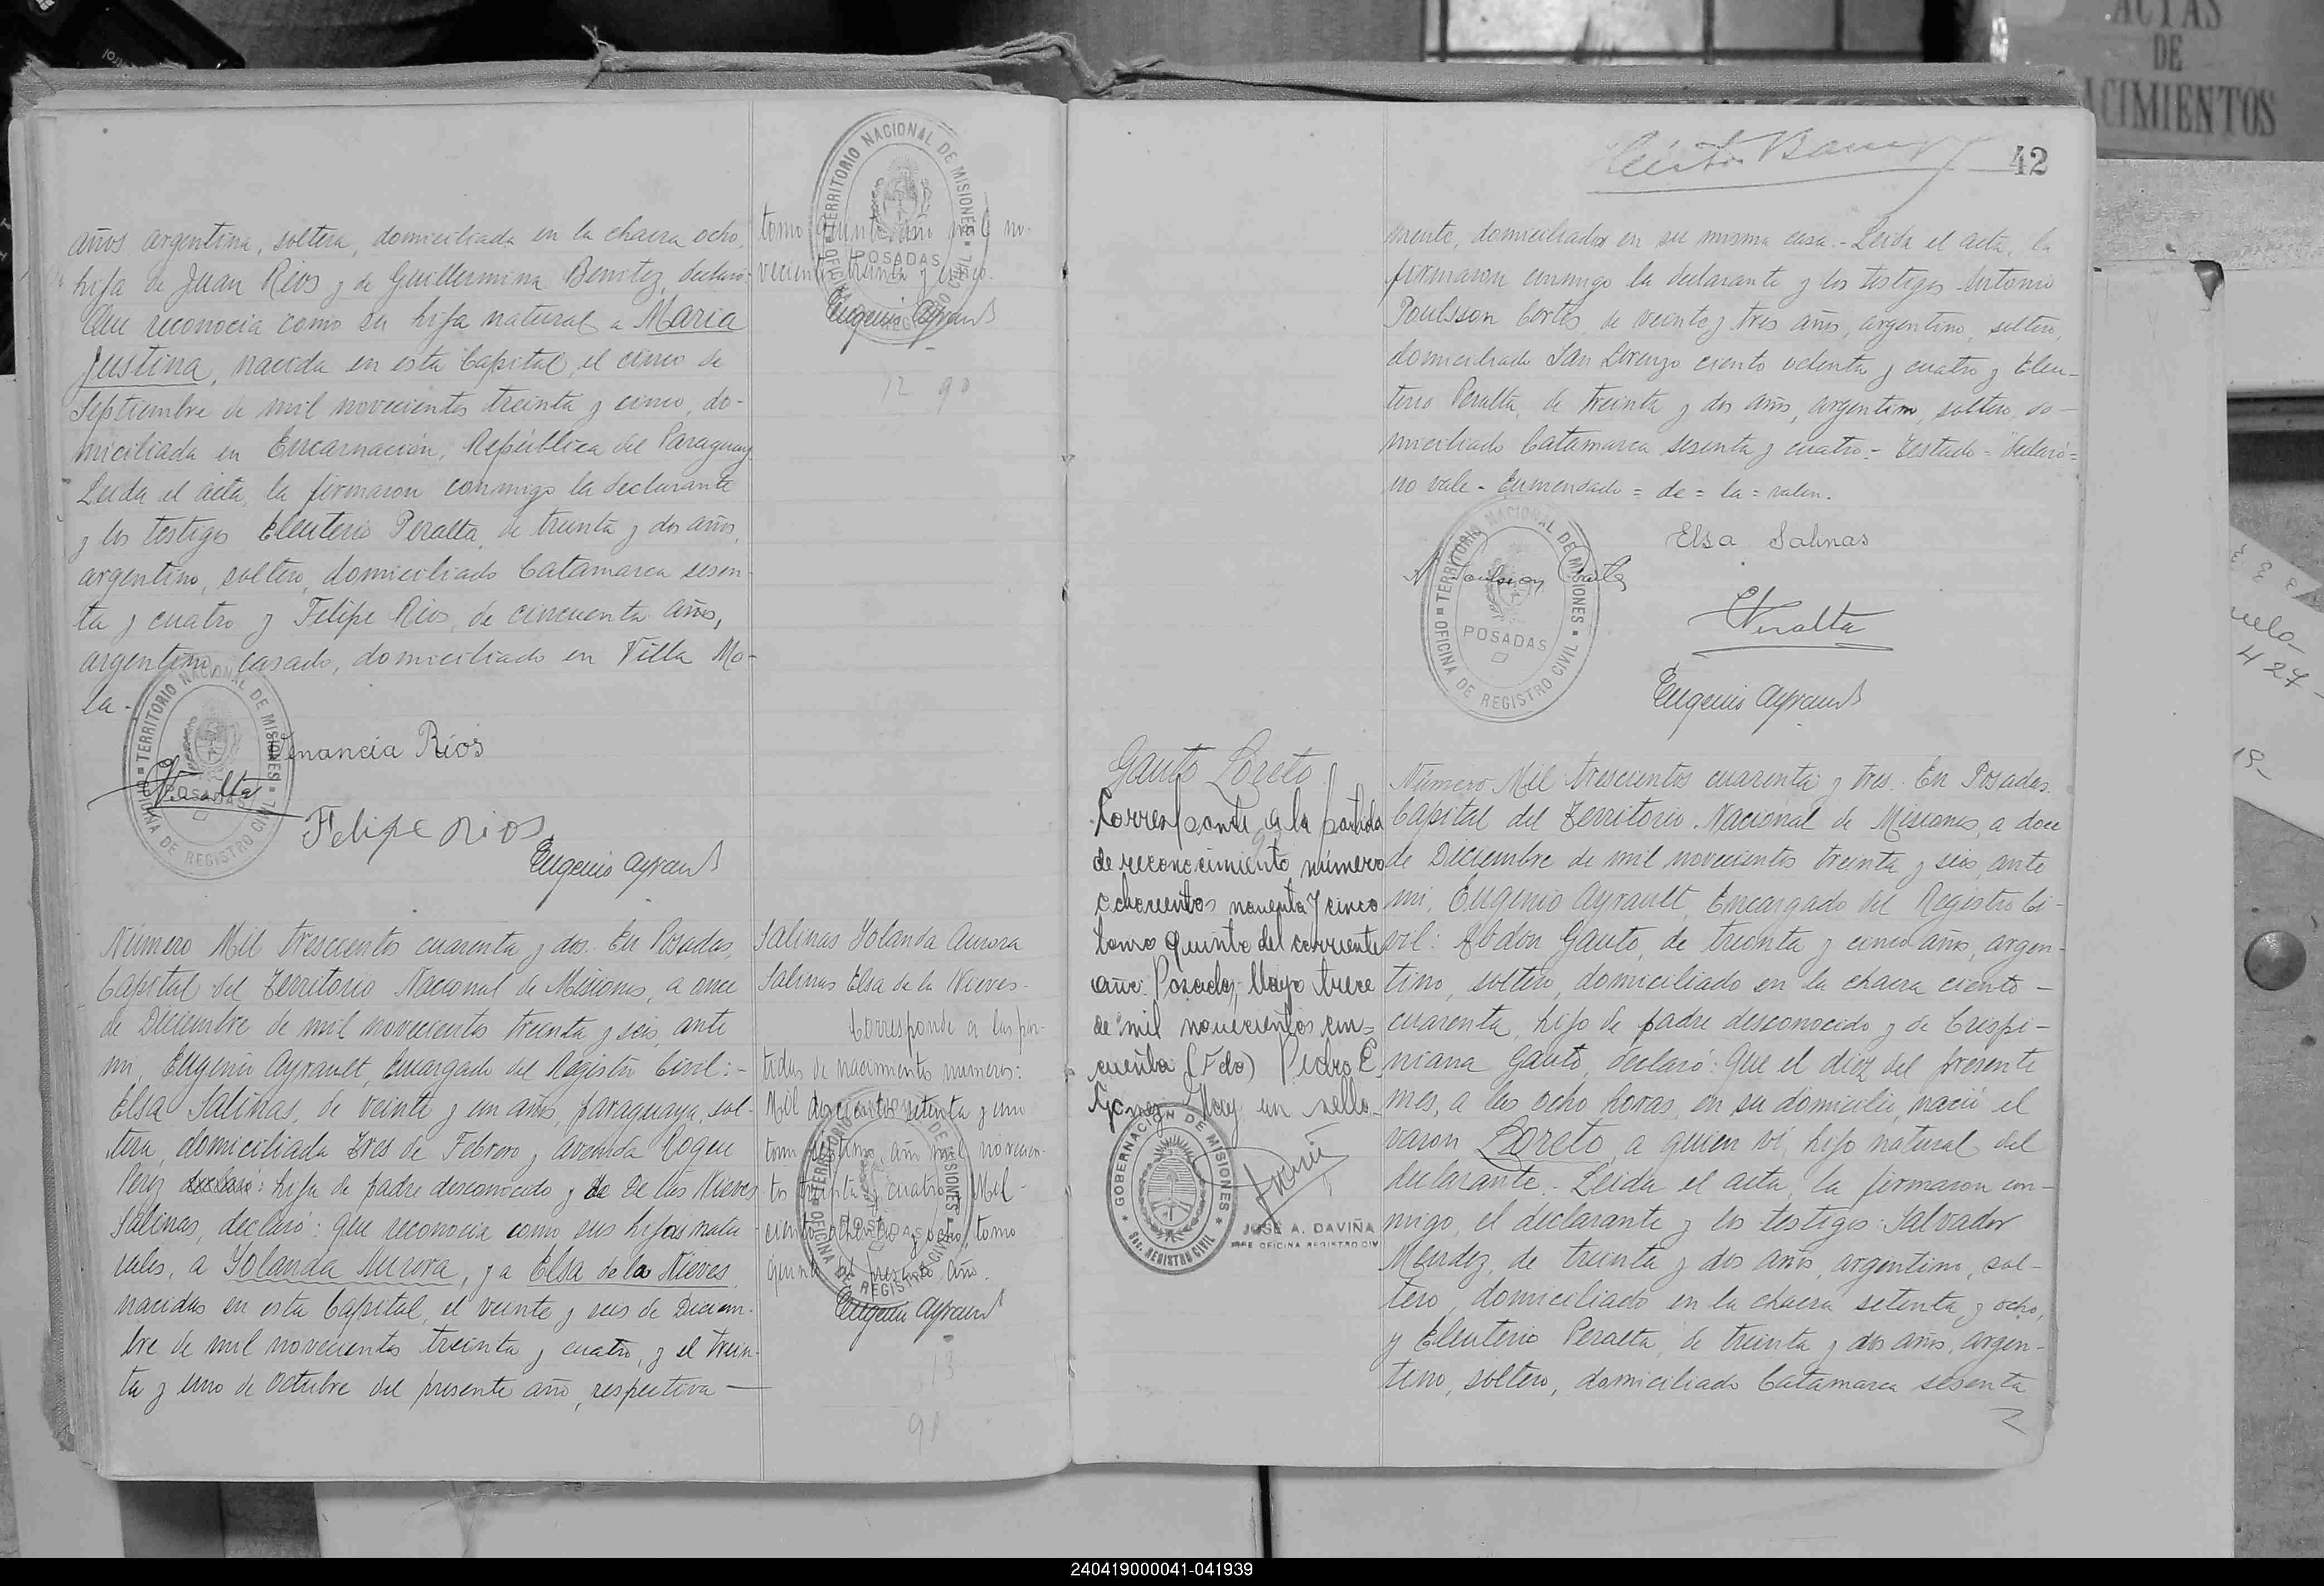 ACTAS
DE
CIMIENTOS
años argentina, soltera, domiciliada en la chacra ocho,
hija de Juan Rios y de Guillermina Benitez, declaró:
Que reconocia como su hija natural a Maria
Justina, nacida en esta Capital, el cinco de
Septiembre de mil novecientos treinta y cinco, do-
miciliada en Encarnación, República del Paraguay
Leida el acta, la firmaron conmigo la declarante
y los testigos Eleuterio Peralta, de treinta y dos años,
argentino, soltero, domiciliado Catamarca sesen-
ta y cuatro y Felipe Rios, de cincuenta años,
argentino, casado, domiciliado en Villa Mo-
la.-
TERRITORIO NACIONAL DE MISIONES
POSADAS
OFICINA DE REGISTRO CIVIL
Venancia Rios
EPeralta
Felipe Rios
Eugenio Ayrault
tomo quinto año mil no-
vecientos treinta y cinco.
TERRITORIO NACIONAL DE MISIONES
POSADAS
OFICINA DE REGISTRO CIVIL
Eugenio Ayrault
12 90
Número Mil trescientos cuarenta y dos. En Posadas,
Capital del Territorio Nacional de Misiones, a once
de Diciembre de mil novecientos treinta y seis, ante
mi, Eugenio Ayrault, Encargado del Registro Civil:-
Elsa Salinas, de veinte y un años, paraguaya, sol-
tera, domiciliada Tres de Febrero y avenida Roque
Perez declaró: hija de padre desconocido y de De las Nieves
Salinas, declaró: que reconocia como sus hijas natu
rales, a Yolanda Aurora, y a Elsa de la Nieves,
nacidas en esta Capital, el veinte y seis de Diciem-
bre de mil novecientos treinta y cuatro, y el trein-
ta y uno de Octubre del presente año, respectiva-
Salinas Yolanda Aurora
Salinas Elsa de la Nieves-
Corresponde a las par-
tidas de nacimientos números:
Mil doscientos setenta y uno
tomo septimo, año mil novecien-
tos treinta y cuatro y Mil-
ciento ochenta y ocho, tomo
quinto del presente año.
TERRITORIO NACIONAL DE MISIONES
POSADAS
OFICINA DE REGISTRO CIVIL
Eugenio Ayrault
13
90
42
mente, domiciliadas en su misma casa.- Leida el acta, la
firmaron conmigo la declarante y los testigos Antonio
Poulsson Cortés, de veinte y tres años, argentino, soltero,
domiciliado San Lorenzo ciento ochenta y cuatro y Eleu-
terio Peralta, de treinta y dos años, argentino, soltero, do-
miciliado Catamarca sesenta y cuatro.- Testado= declaró=
no vale- Enmendado= de= la= valen.
Elsa Salinas
TERRITORIO NACIONAL DE MISIONES
POSADAS
OFICINA DE REGISTRO CIVIL
A Poulsson Cortés
EPeralta
Eugenio Ayrault
Gauto Loreto
Corresponde a la partida
de reconocimiento número
ochocientos noventa y cinco
tomo quinto del corriente
año. Posadas, Mayo trece
de mil novecientos cin=
cuenta (Fdo) Pedro E.
Gomez Hay un sello
GOBERNACION DE MISIONES
Sec. REGISTRO CIVIL
JOSÉ A. DAVIÑA
JEFE OFICINA REGISTRO CIV
Número Mil trescientos cuarenta y tres. En Posadas,
Capital del Territorio Nacional de Misiones, a doce
de Diciembre de mil novecientos treinta y seis, ante
mi, Eugenio Ayrault, Encargado del Registro Ci-
vil: Abdon Gauto, de treinta y cinco años, argen-
tino, soltero, domiciliado en la chacra ciento-
cuarenta, hijo de padre desconocido y de Crispi-
niana Gauto, declaró: Que el diez del presente
mes, a las ocho horas, en su domicilio, nació el
varon Loreto, a quien vi, hijo natural del
declarante.- Leida el acta, la firmaron con-
migo, el declarante y los testigos: Salvador
Mendez, de treinta y dos años, argentino, sol-
tero, domiciliado en la chacra setenta y ocho,
y Eleuterio Peralta, de treinta y dos años, argen-
tino, soltero, domiciliado Catamarca sesenta
427
19-
240419000041-041939